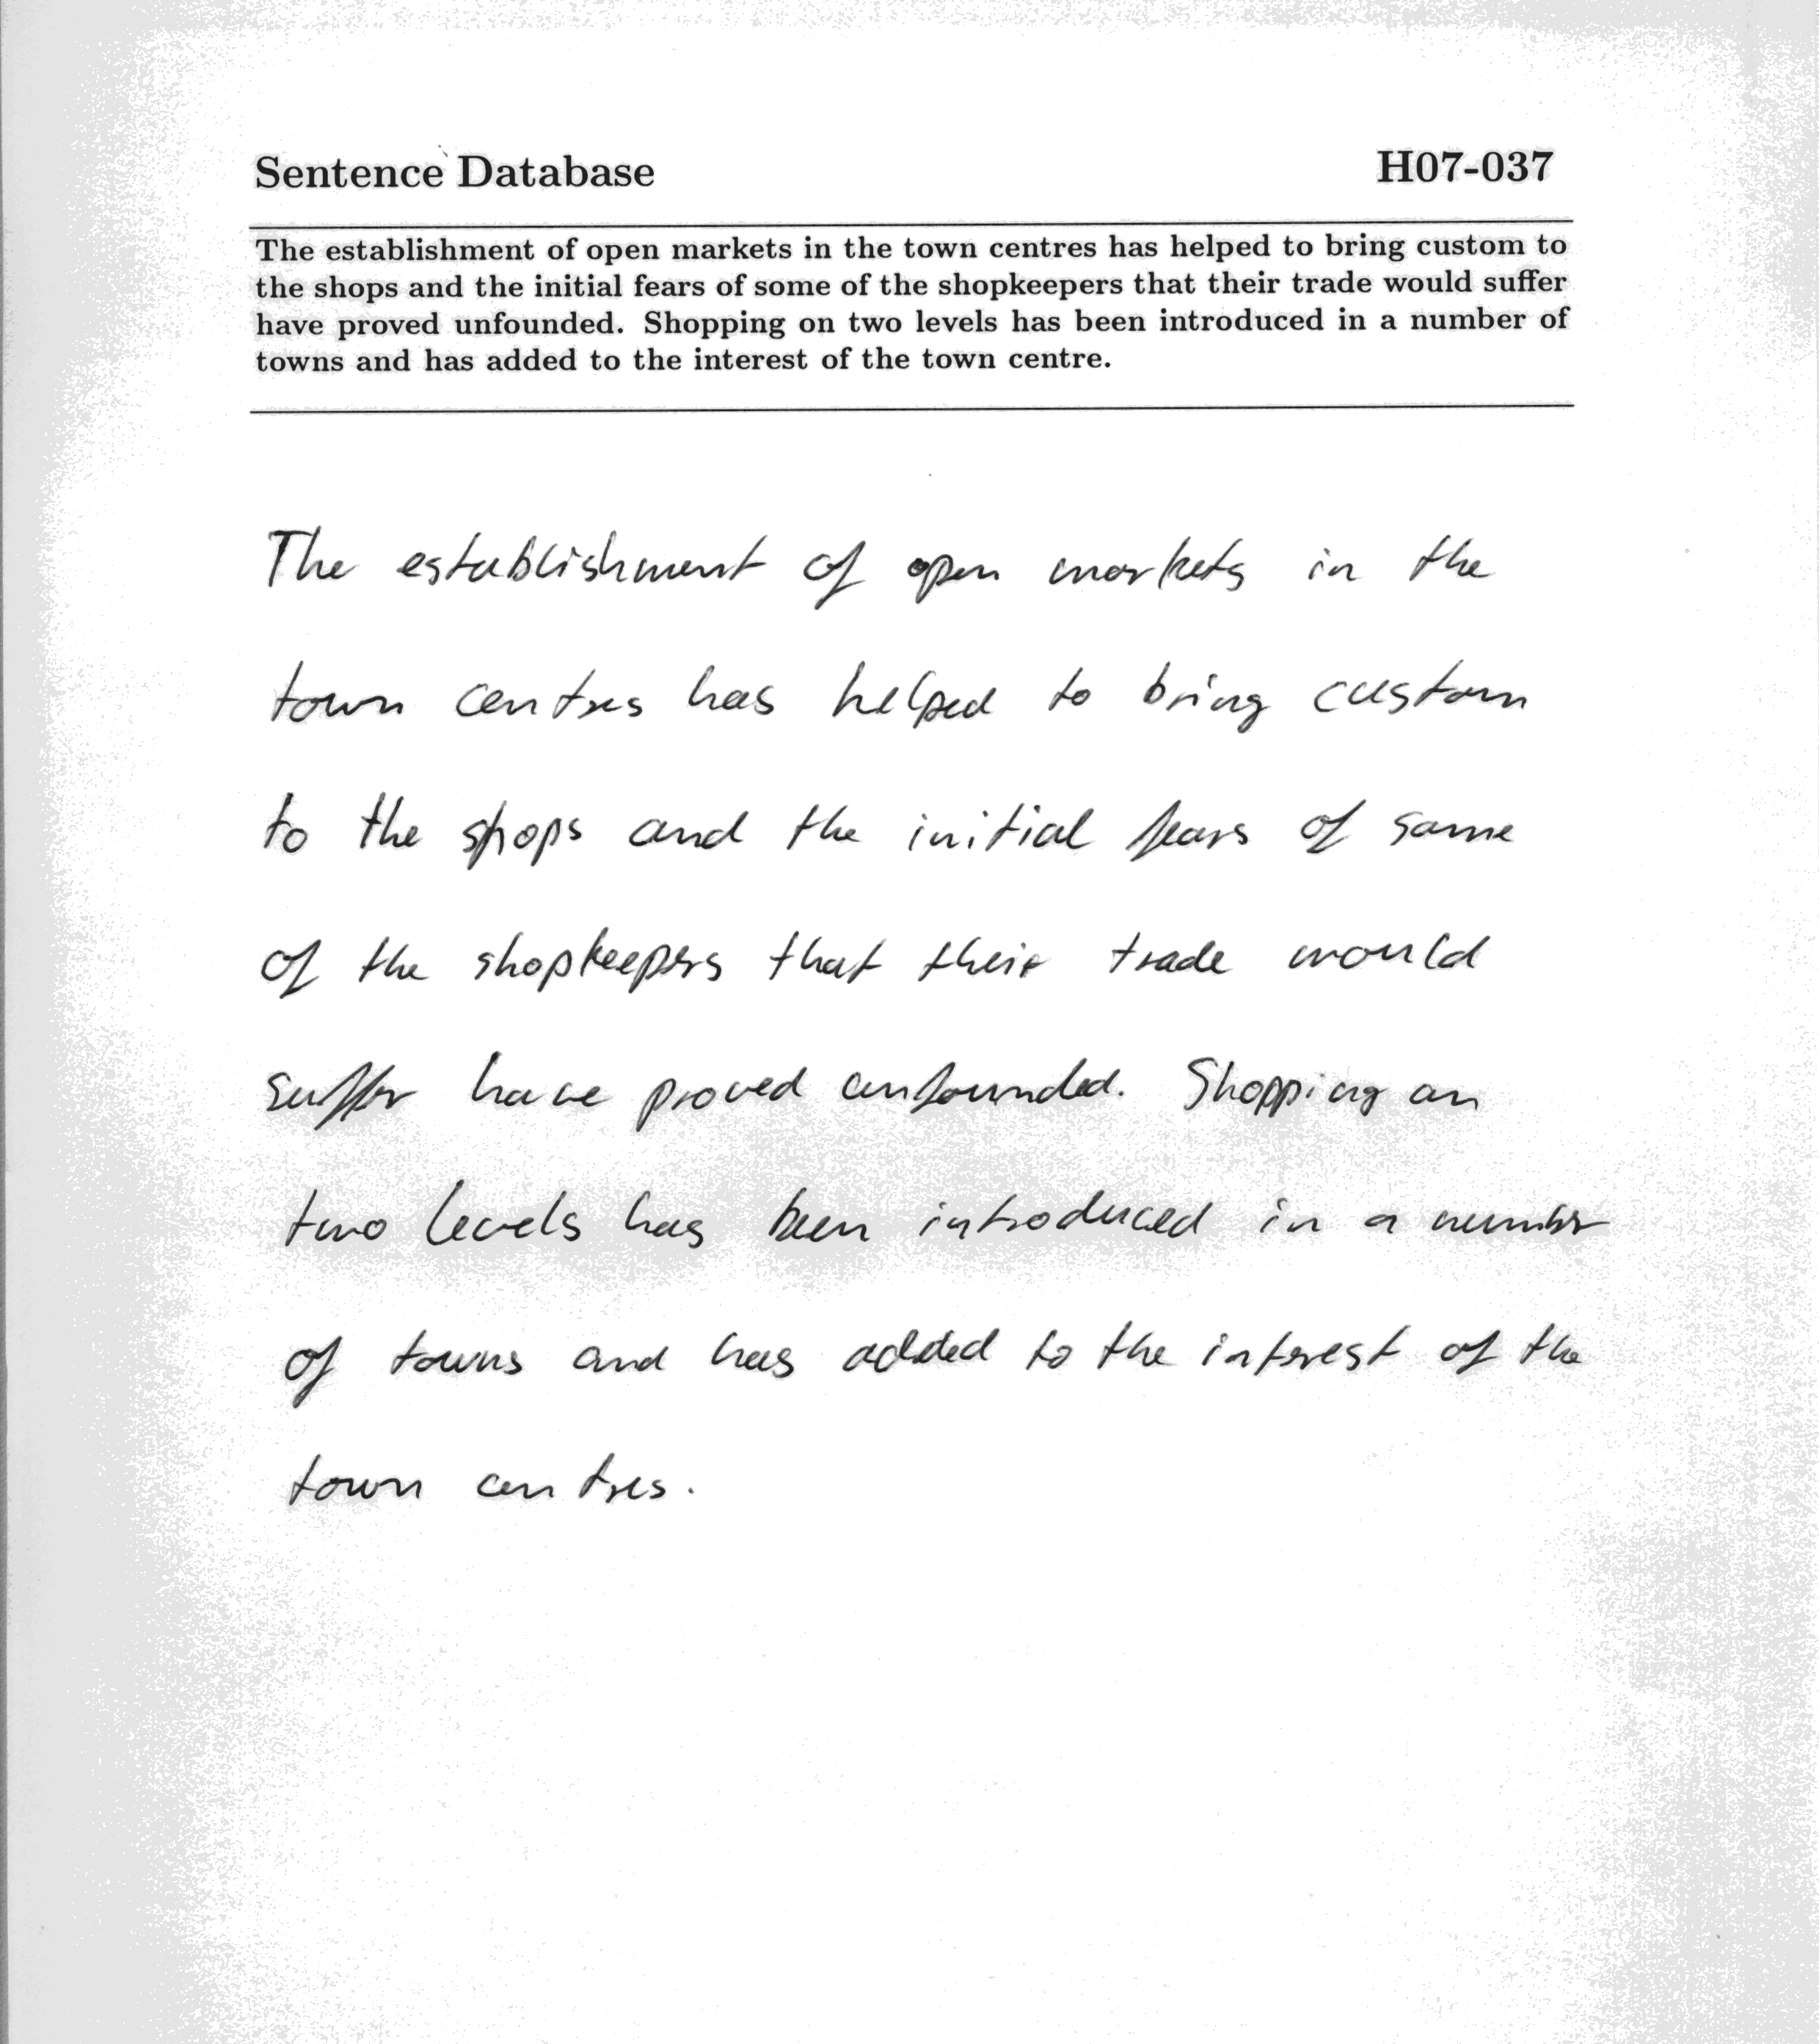 Sentence Database
H07-037
The establishment of open markets in the town centres has helped to bring custom to
the shops and the initial fears of some of the shopkeepers that their trade would suffer
have proved unfounded. Shopping on two levels has been introduced in a number of
towns and has added to the interest of the town centre.
The establishment of open markets in the
town centres has helped to bring custom
to the shops and the initial fears of some
of the shopkeepers that their trade would
suffer have proved unfounded. Shopping on
two levels has been introduced in a number
of towns and has added to the interest of the
town centres.